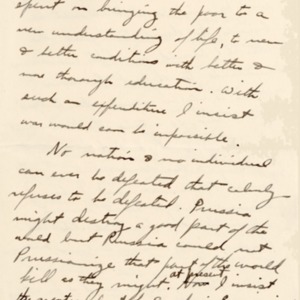 spent in bringing the poor to a
new understanding of life, to new
& better conditions with better &
more thorough education. With
such an expenditure I insist
war would be impossible.
No nation & no individual
can ever be defeated that calmly
refuses to be defeated. Prussia
might destroy a good part of the
world but Prussia could not
Prussianize that part of the world
at present
kill as they might. Now I insist